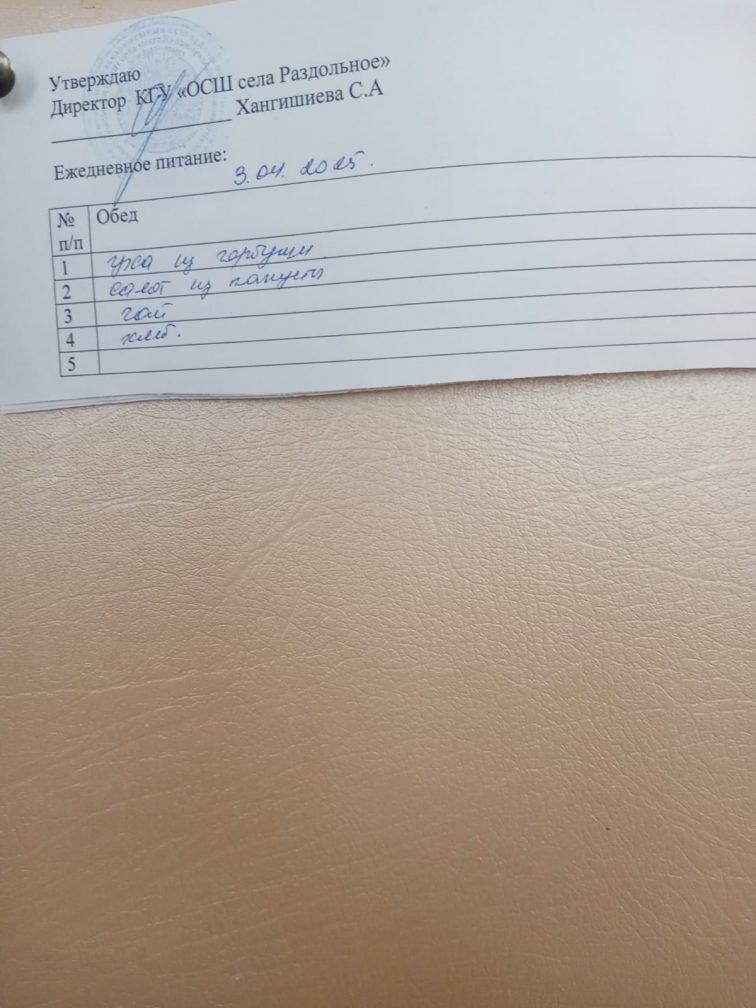 Утверждаю
Директор КГУ «ОСШ села Раздольное»
Хангишиева С.А
Ежедневное питание:
3.04. 2025.
№ п/п Обед
1 уха из горбуши
2 салат из капусты
3 чай
4 хлеб.
5